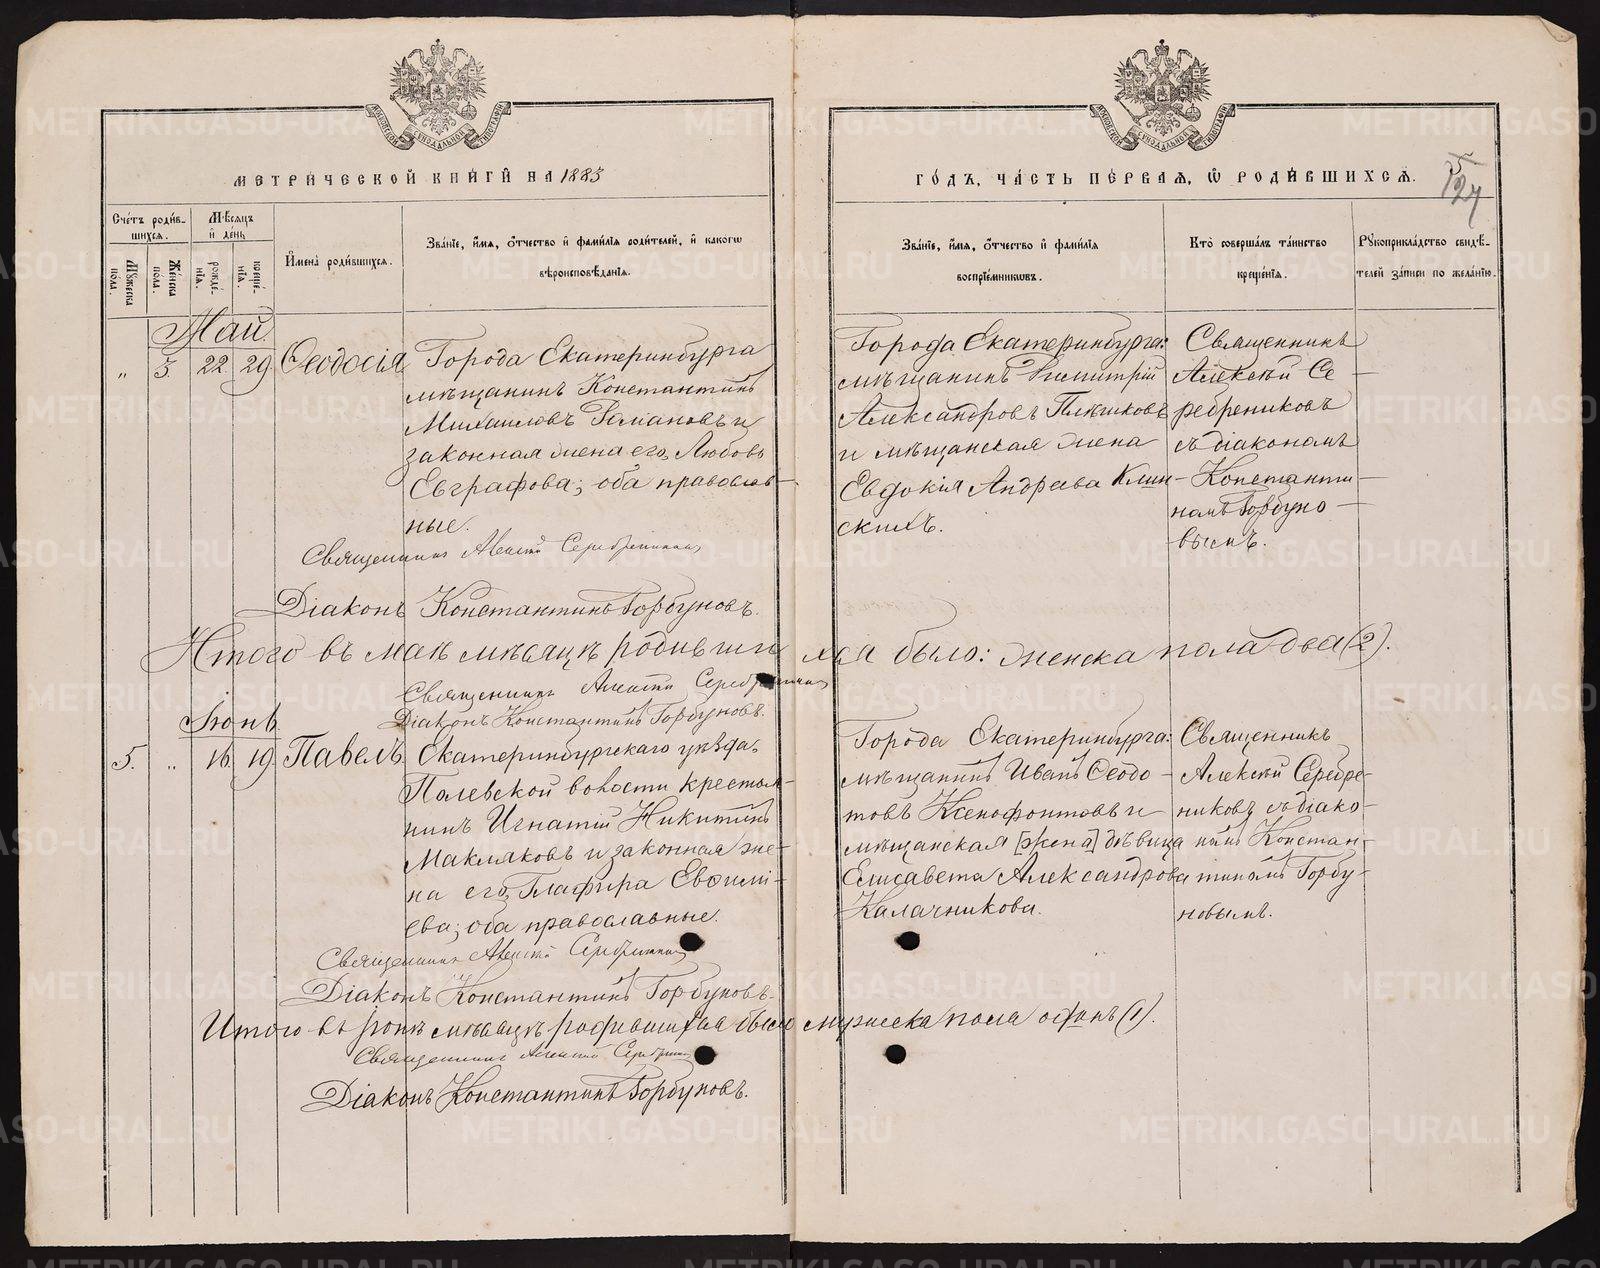 МЕТРИЧЕСКОЙ КНИГИ НА 1885
ГОДЪ, ЧАСТЬ ПЕРВАЯ, Ѡ РОДИВШИХСЯ.
124
Счетъ родив-
шихся.
Мѣсяцъ
и день
Мужеска
пола.
Женска
пола.
рожде-
нія.
креще-
нія.
Имена родившихся.
Званіе, имя, отчество и фамилія родителей, и какогѡ
вѣроисповѣданія.
Званіе, имя, отчество и фамилія
воспріемниковъ.
Кто совершалъ таинство
крещенія.
Рукоприкладство свидѣ-
телей записи по желанію.
Май.
„ 3 22 29 Ѳеодосія
Города Екатеринбурга
мѣщанинъ Константинъ
Михаиловъ Романовъ и
законная жена его, Любовь
Евграфова; оба православ-
ные.
Города Екатеринбурга:
мѣщанинъ Димитрій
Александровъ Плѣшковъ
и мѣщанская жена
Евдокія Андреева Клин-
скихъ.
Священникъ
Алексѣй Се-
ребрениковъ
съ діакономъ
Константи-
номъ Горбуно-
вымъ.
Священникъ Алексѣй Серебрениковъ
Діаконъ Константинъ Горбуновъ.
Итого въ маѣ мѣсяцѣ родившихся было: женска пола два (2).
Священникъ Алексѣй Серебрениковъ
Діаконъ Константинъ Горбуновъ.
Іюнь
5. „ 16 19 Павелъ
Екатеринбургскаго уѣзда,
Полевской волости крестья-
нинъ Игнатій Никитинъ
Макляковъ и законная же-
на его, Глафира Евѳимі-
ева; оба православные.
Города Екатеринбурга:
мѣщанинъ Иванъ Ѳеодо-
товъ Ксенофонтовъ и
мѣщанская [жена] дѣвица
Елисавета Александрова
Калачникова.
Священникъ
Алексѣй Серебре-
никовъ съ діако-
номъ Констан-
тиномъ Горбу-
новымъ.
Священникъ Алексѣй Серебрениковъ
Діаконъ Константинъ Горбуновъ.
Итого въ іюнѣ мѣсяцѣ родившихся было мужеска пола одинъ (1).
Священникъ Алексѣй Серебрениковъ
Діаконъ Константинъ Горбуновъ.
METRIKI.GASO-URAL.RU